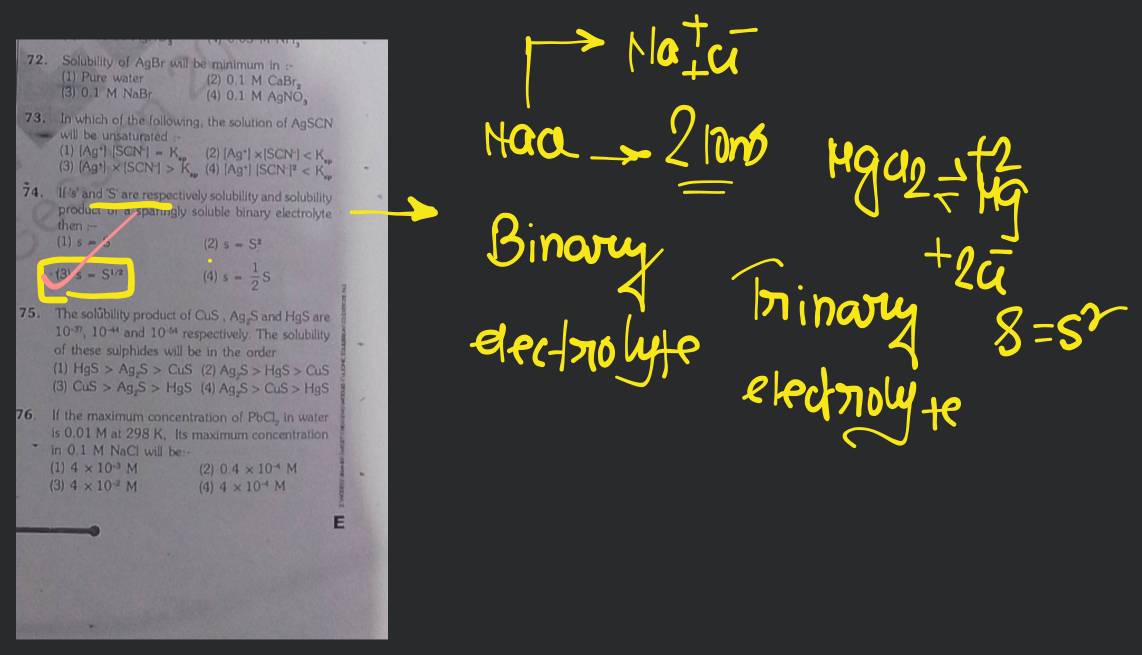 72. Solubility of AgBr will be minimum in :-
(1) Pure water (2) 0.1 M CaBr₂
(3) 0.1 M NaBr (4) 0.1 M AgNO₃
73. In which of the following, the solution of AgSCN
will be unsaturated :-
(1) [Ag⁺] [SCN⁻] = Kₛₚ (2) [Ag⁺] × [SCN⁻] < Kₛₚ
(3) [Ag⁺] × [SCN⁻] > Kₛₚ (4) [Ag⁺] [SCN⁻]² < Kₛₚ
74. If 's' and 'S' are respectively solubility and solubility
product of a sparingly soluble binary electrolyte
then :-
(1) s = S (2) s = S²
(3) s = S¹/² (4) s = 1/2 S
75. The solubility product of CuS, Ag₂S and HgS are
10⁻³⁷, 10⁻⁴⁴ and 10⁻⁵⁴ respectively. The solubility
of these sulphides will be in the order
(1) HgS > Ag₂S > CuS (2) Ag₂S > HgS > CuS
(3) CuS > Ag₂S > HgS (4) Ag₂S > CuS > HgS
76. If the maximum concentration of PbCl₂ in water
is 0.01 M at 298 K, Its maximum concentration
in 0.1 M NaCl will be:-
(1) 4 × 10⁻³ M (2) 0.4 × 10⁻⁴ M
(3) 4 × 10⁻² M (4) 4 × 10⁻⁴ M
E
Na⁺ + Cl⁻
NaCl → 2 ions
Binary
electrolyte
HgCl₂ ⇌ Hg⁺²
+2Cl⁻
Trinary
electrolyte
S = s²